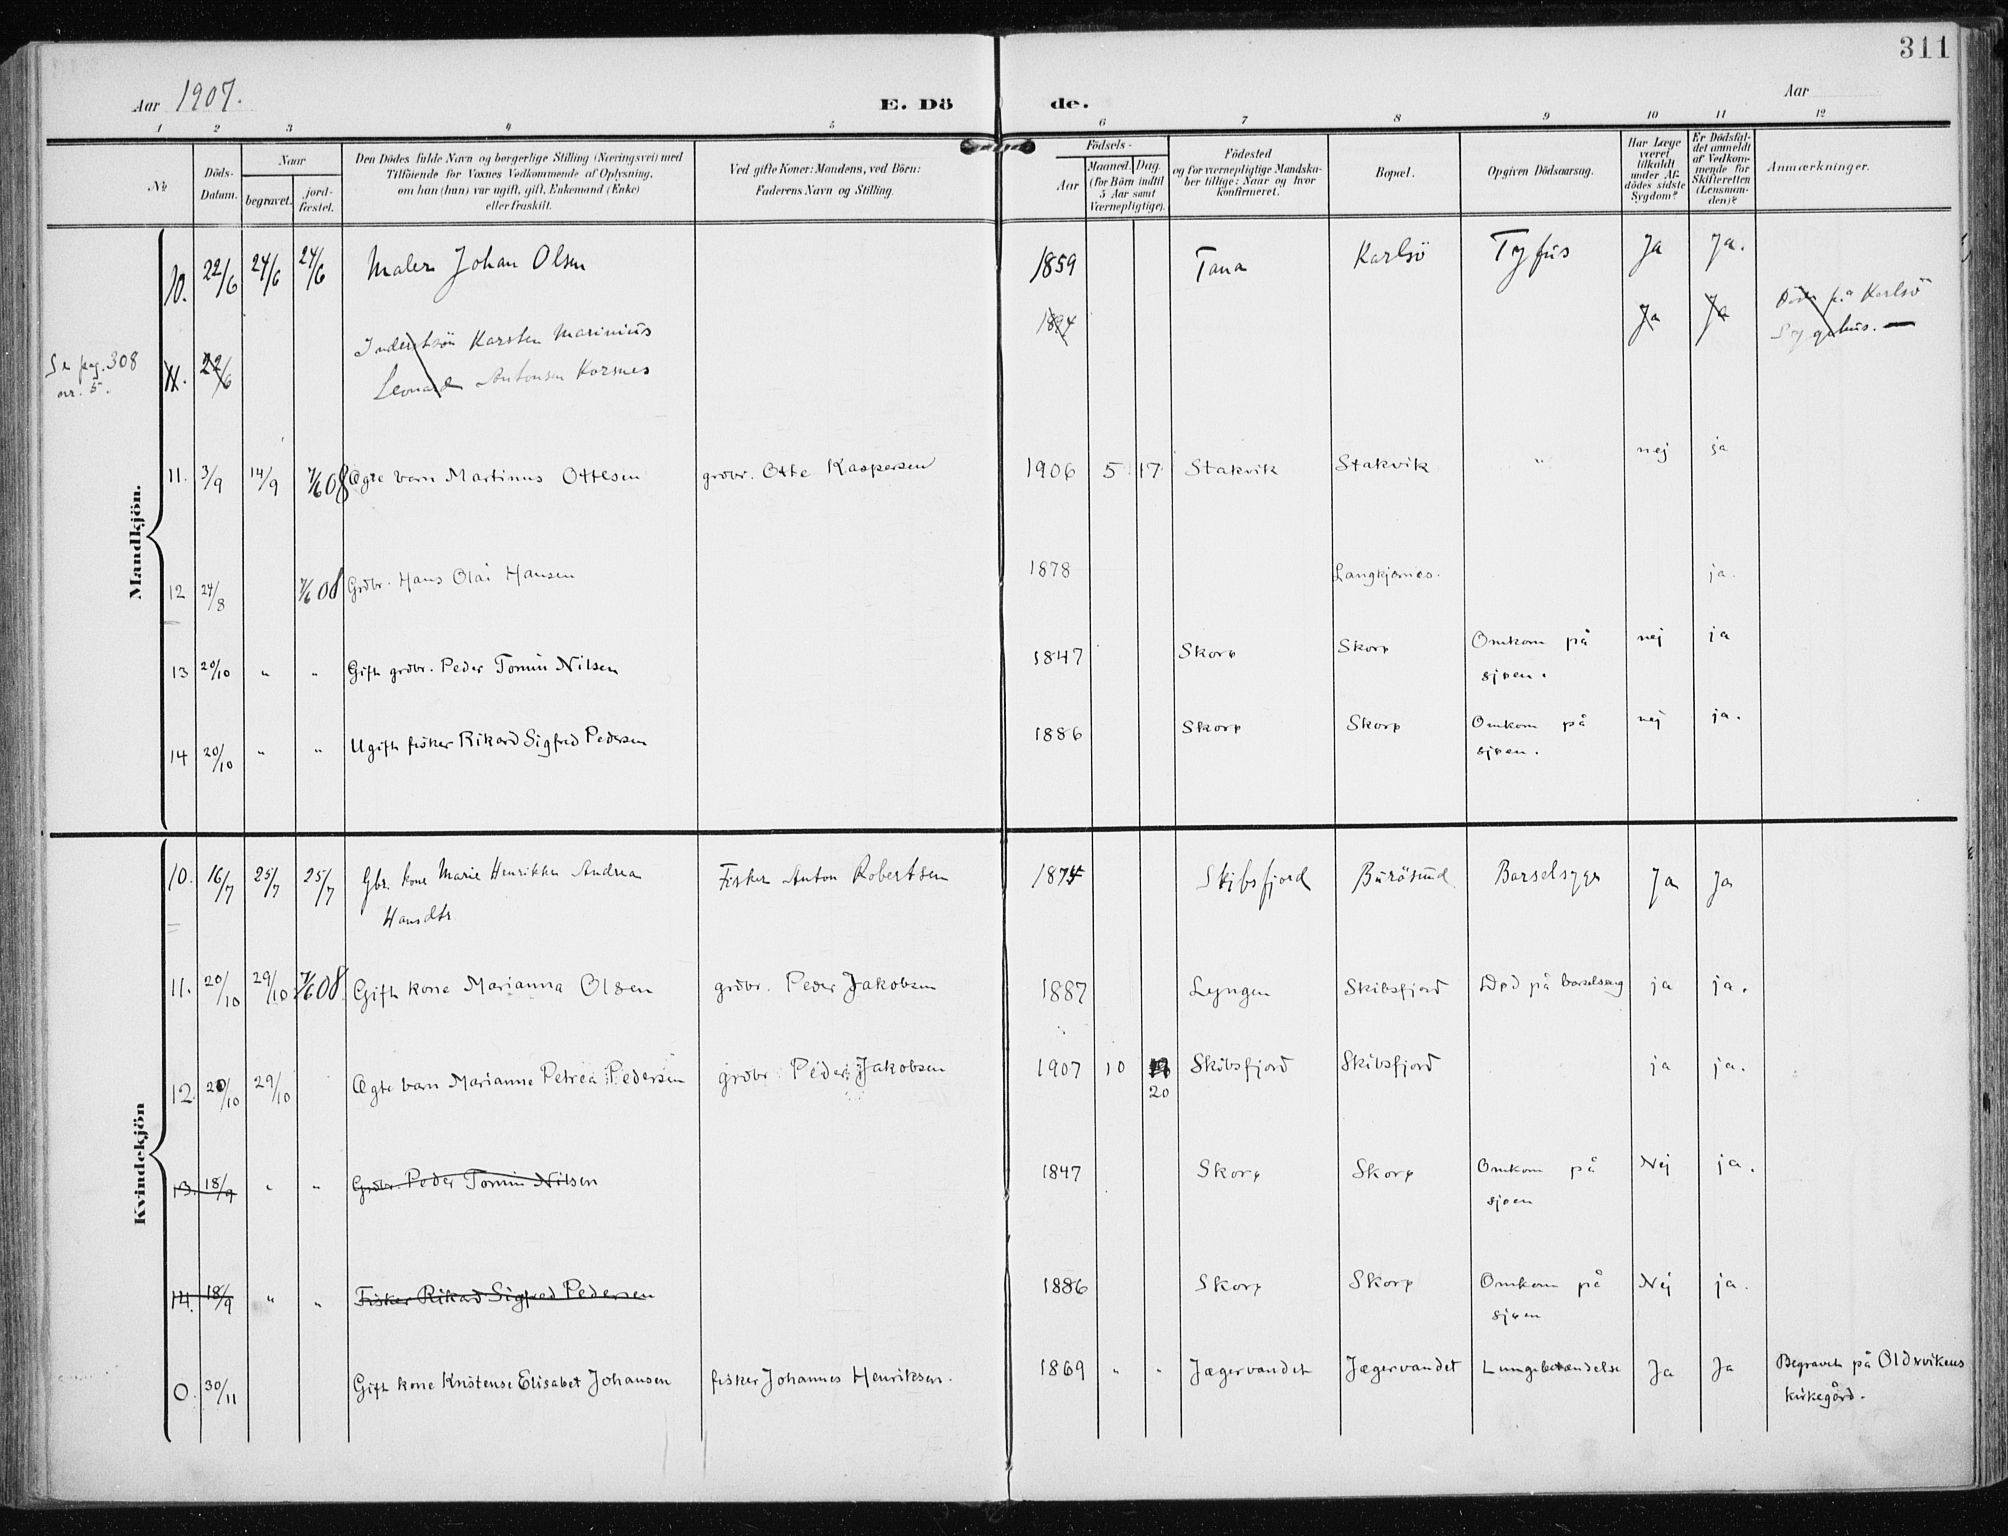 311
Aar 1907.
E. Dö de.
Aar
1 2 3 4 5 6 7 8 9 10 11 12
№
Döds-Datum.
Naar
begravet.
jord-fæstet.
Den Dödes fulde Navn og borgerlige Stilling (Næringsvei) med
Tilföiende for Voxnes Vedkommende af Oplysning,
om han (hun) var ugift, gift, Enkemand (Enke)
eller fraskilt.
Ved gifte Koner: Mandens, ved Börn:
Faderens Navn og Stilling.
Födsels-
Aar
Maaned. Dag.
(for Börn indtil
5 Aar samt
Værnepligtige).
Födested
og for værnepligtige Mandska-
ber tillige: Naar og hvor
konfirmeret.
Bopæl.
Opgiven Dödsaarsag.
Har Læge
været
tilkaldt
under Af-
dödes sidste
Sygdom?
Er Dödsfal-
det anmeldt
af Vedkom-
mende for
Skifteretten
(Lensman-
den)?
Anmærkninger.
Mandkjön.
10. 22/6 24/6 24/6 Maler Johan Olsen 1859 Tana Karlsö Tyfus Ja Ja.
Se pag. 308
nr. 5.
11. 22/6 Karsten Marinius
Leonard Antonsen Korsnes 1894 Ja Ja Död på Karlsö
Sygehus. —
11. 3/9 14/9 7/6 08 Ægte barn Martinus Ottesen grdbr. Otte Kaspersen 1906 5 17 Stakvik Stakvik " nej ja
12 24/8 7/6 08 Grdbr. Hans Olai Hansen 1878 Langkjernes. ja.
13 20/10 " " Gift grdbr. Peder Tomin Nilsen 1847 Skorø Skorø Omkom på
sjøen. nej ja
14 20/10 " " Ugift fisker Rikard Sigfred Pedersen 1886 Skorø Skorø Omkom på
sjøen. nej ja.
Kvindekjön
10. 16/7 25/7 25/7 Gbr. kone Marie Henrikke Andrea
Hansdtr Fisker Anton Robertsen 1875 Skibsfjord Burösund Barselsyge Ja Ja
11. 20/10 29/10 7/6 08. Gift kone Marianna Olsen grdbr. Peder Jakobsen 1887 Lyngen Skibsfjord Død på barselseng ja ja.
12. 20/10 29/10 Ægte barn Marianne Petrea Pedersen grdbr. Peder Jakobsen 1907 10 20 Skibsfjord Skibsfjord ja ja.
13. 18/9 " " Grdbr. Peder Tomin Nilsen 1847 Skorø Skorø Omkom på
sjøen Nej ja.
14. 18/9 " " Fisker Rikard Sigfred Pedersen 1886 Skorø Skorø Omkom på
sjøen Nej ja.
0. 30/11 Gift kone Kristense Elisabet Johansen fisker Johannes Henriksen. 1869 " " Jægervandet Jægervandet Lungebetændelse Ja Ja Begravet på Oldervikens
kirkegård.